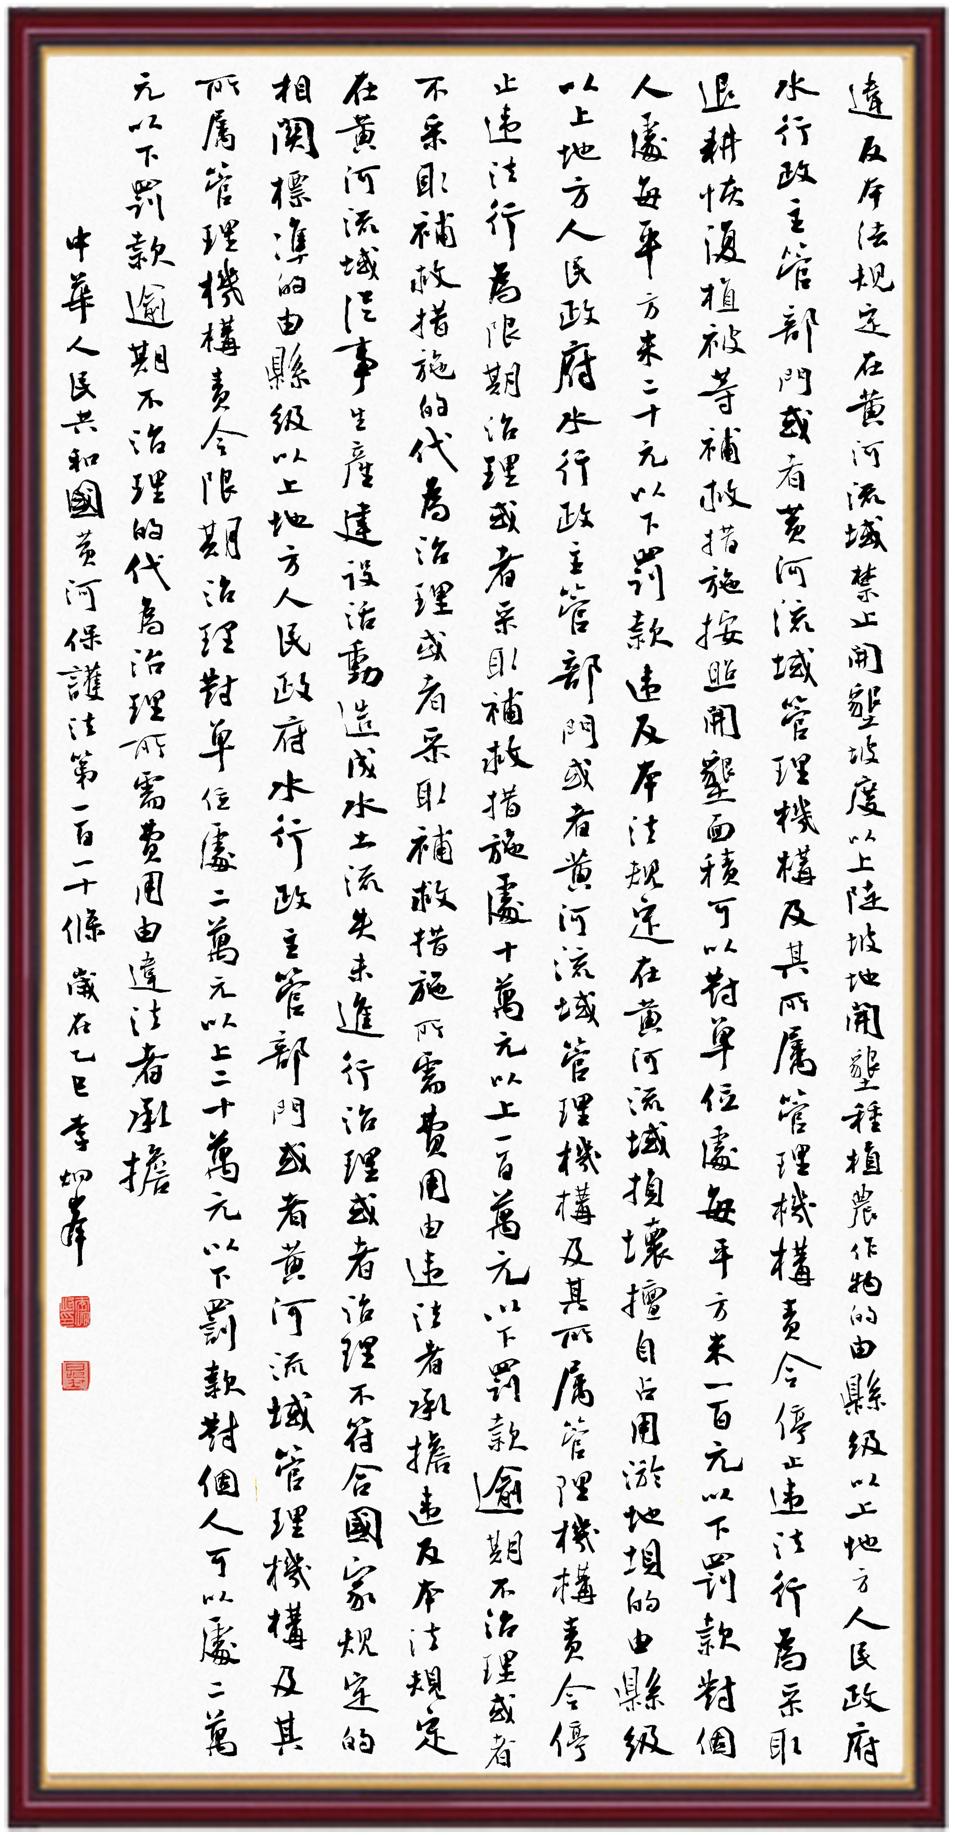 違反本法規定在黄河流域禁止開墾坡度以上陡坡地開墾種植農作物的由縣级以上地方人民政府
水行政主管部門或者黄河流域管理機構及其所属管理機構責令停止违法行為采取
退耕恢復植被等補救措施按照開墾面積可以對單位處每平方米一百元以下罰款對個
人處每平方米二十元以下罰款违反本法規定在黄河流域損壞擅自占用淤地垻的由縣级
以上地方人民政府水行政主管部門或者黄河流域管理機構及其所属管理機構責令停
止违法行為限期治理或者采取補救措施處十萬元以上一百萬元以下罰款逾期不治理或者
不采取補救措施的代為治理或者采取補救措施所需費用由违法者承擔违反本法規定
在黄河流域從事生産建設活動造成水土流失未進行治理或者治理不符合國家規定的
相関標準的由縣级以上地方人民政府水行政主管部門或者黄河流域管理機構及其
所属管理機構責令限期治理對單位處二萬元以上二十萬元以下罰款對個人可以處二萬
元以下罰款逾期不治理的代為治理所需費用由違法者承擔
中華人民共和國黄河保護法第一百一十條 歲在乙巳 李炳峯